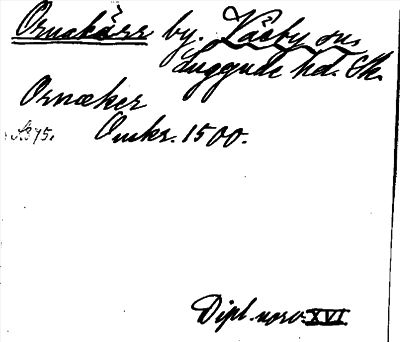 Ornakärr by. Väsby sn,
Luggude hd. Sk.
Ornæker
S. 75. Omkr. 1500.
Dipl. norv. XVI.